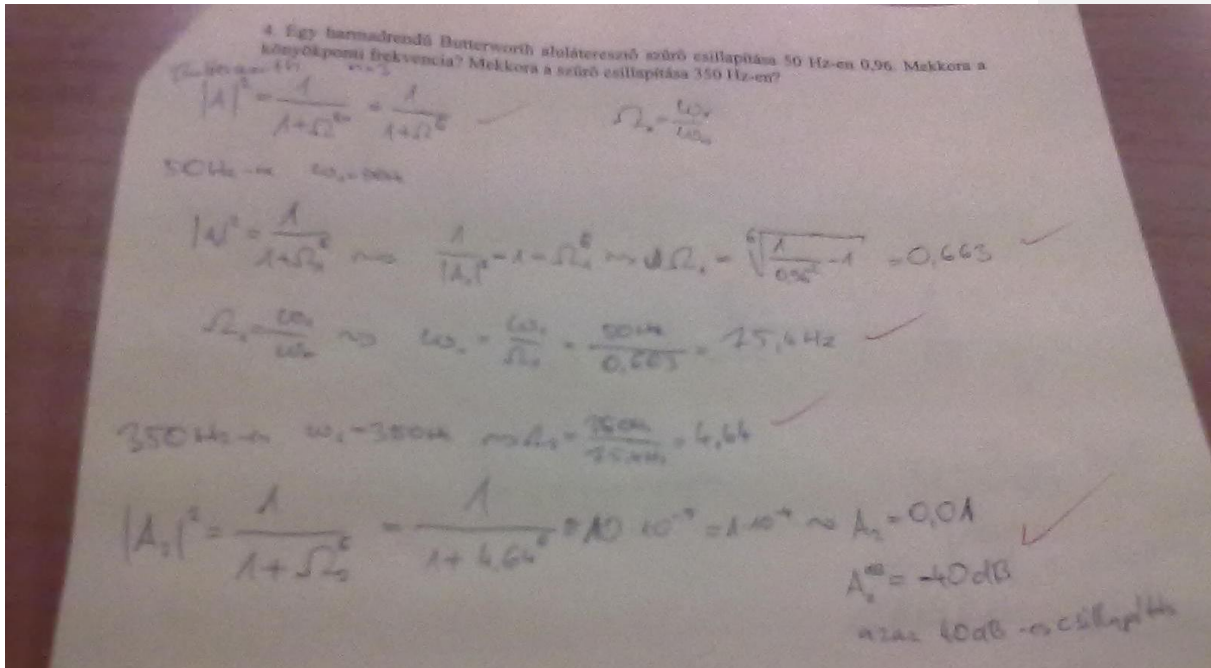 4. Egy harmadrendű Butterworth aluláteresztő szűrő csillapítása 50 Hz-en 0,96. Mekkora a
könyökponti frekvencia? Mekkora a szűrő csillapítása 350 Hz-en?
n=3
|A|² = 1/(1+Ω⁶ⁿ) = 1/(1+Ω⁶) Ω₁ = ω₁/ω₀
50Hz ~>
|A₁|² = 1/(1+Ω₁⁶) ~> 1/|A₁|² - 1 = Ω₁⁶ ~> Ω₁ = ⁶√(1/0,96² - 1) = 0,663
Ω₁ = ω₁/ω₀ ~> ω₀ = ω₁/Ω₁ = 50Hz/0,663 = 75,4Hz
350Hz ~> ω₂ = 350Hz ~> Ω₂ = 350Hz/75,4Hz = 4,64
|A₂|² = 1/(1+Ω₂⁶) = 1/(1+4,64⁶) = 1·10⁻⁴ ~> A₂ = 0,01
A₂^dB = -40dB
azaz 40dB-es csillapítás